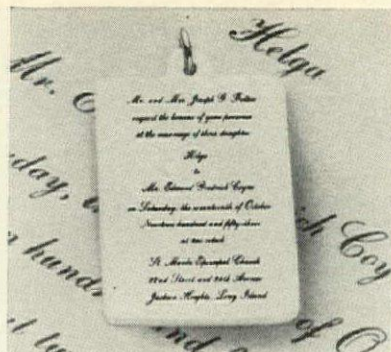 Helga
Mr.
day,
ich Coy
hund
of O
Mr. and Mrs. Joseph
request the honour of your presence
at the marriage of their daughter
Helga
to
Mr. Edward Coyne
on Saturday, the seventeenth of October
Nineteen hundred and fifty-three
at o'clock
St. Marks Episcopal Church
Street and 34th Avenue
Jackson Heights, Long Island